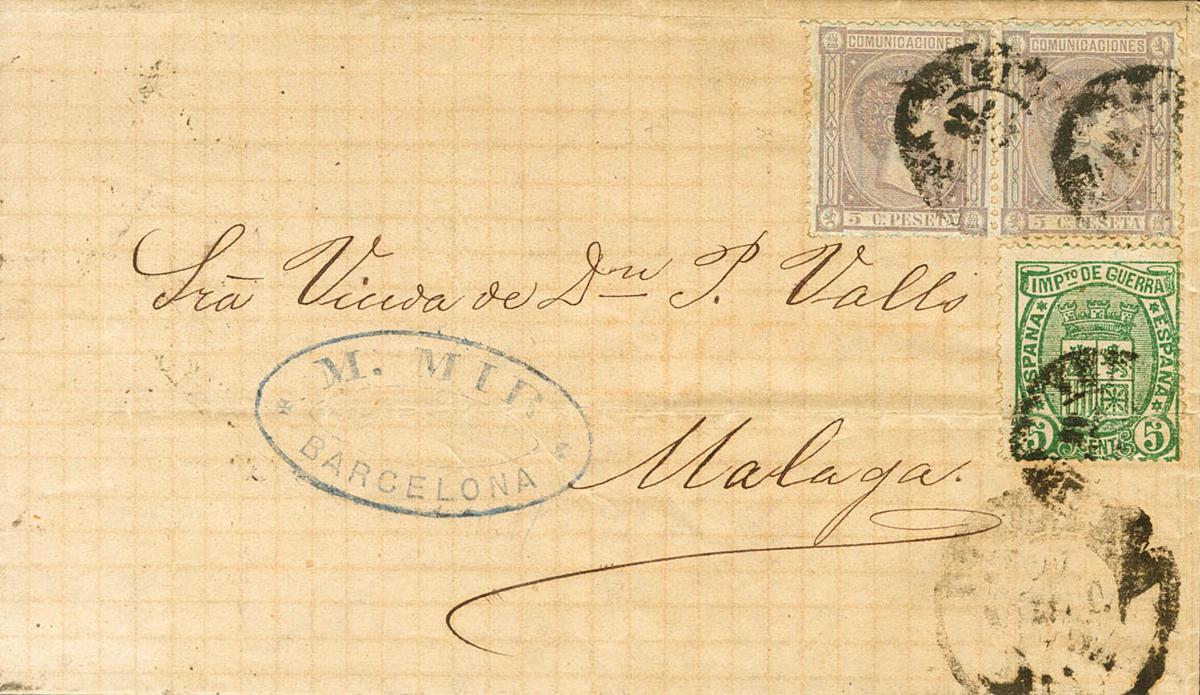 COMUNICACIONES
5 C. PESETA
COMUNICACIONES
5 C. PESETA
IMPTO DE GUERRA
ESPAÑA
ESPAÑA
5 CENTS 5
Sra Viuda de Dn P. Valls
M. MIR
BARCELONA
Malaga.